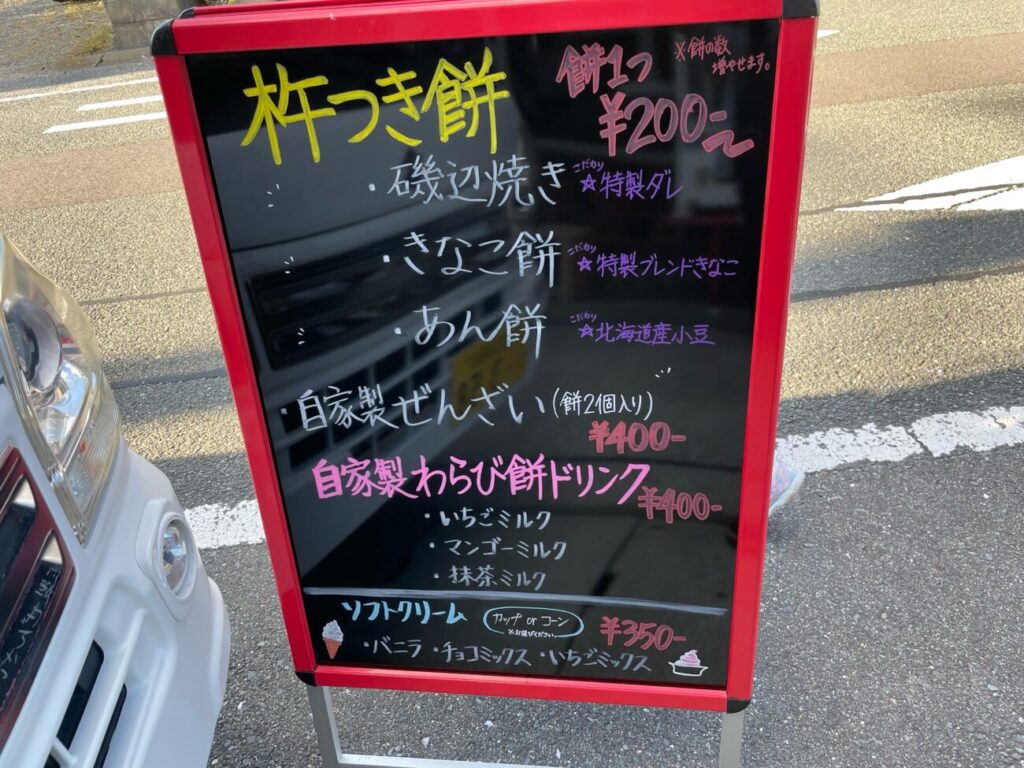 杵つき餅 餅1つ ※餅の数
増やせます。
¥200-~
・磯辺焼き こだわり ☆特製ダレ
・きなこ餅 こだわり ☆特製ブレンドきなこ
・あん餅 こだわり ☆北海道産小豆
・自家製ぜんざい(餅2個入り)
¥400-
自家製わらび餅ドリンク ¥400-
・いちごミルク
・マンゴーミルク
・抹茶ミルク
ソフトクリーム カップ or コーン ¥350-
※お選びください。
・バニラ ・チョコミックス ・いちごミックス